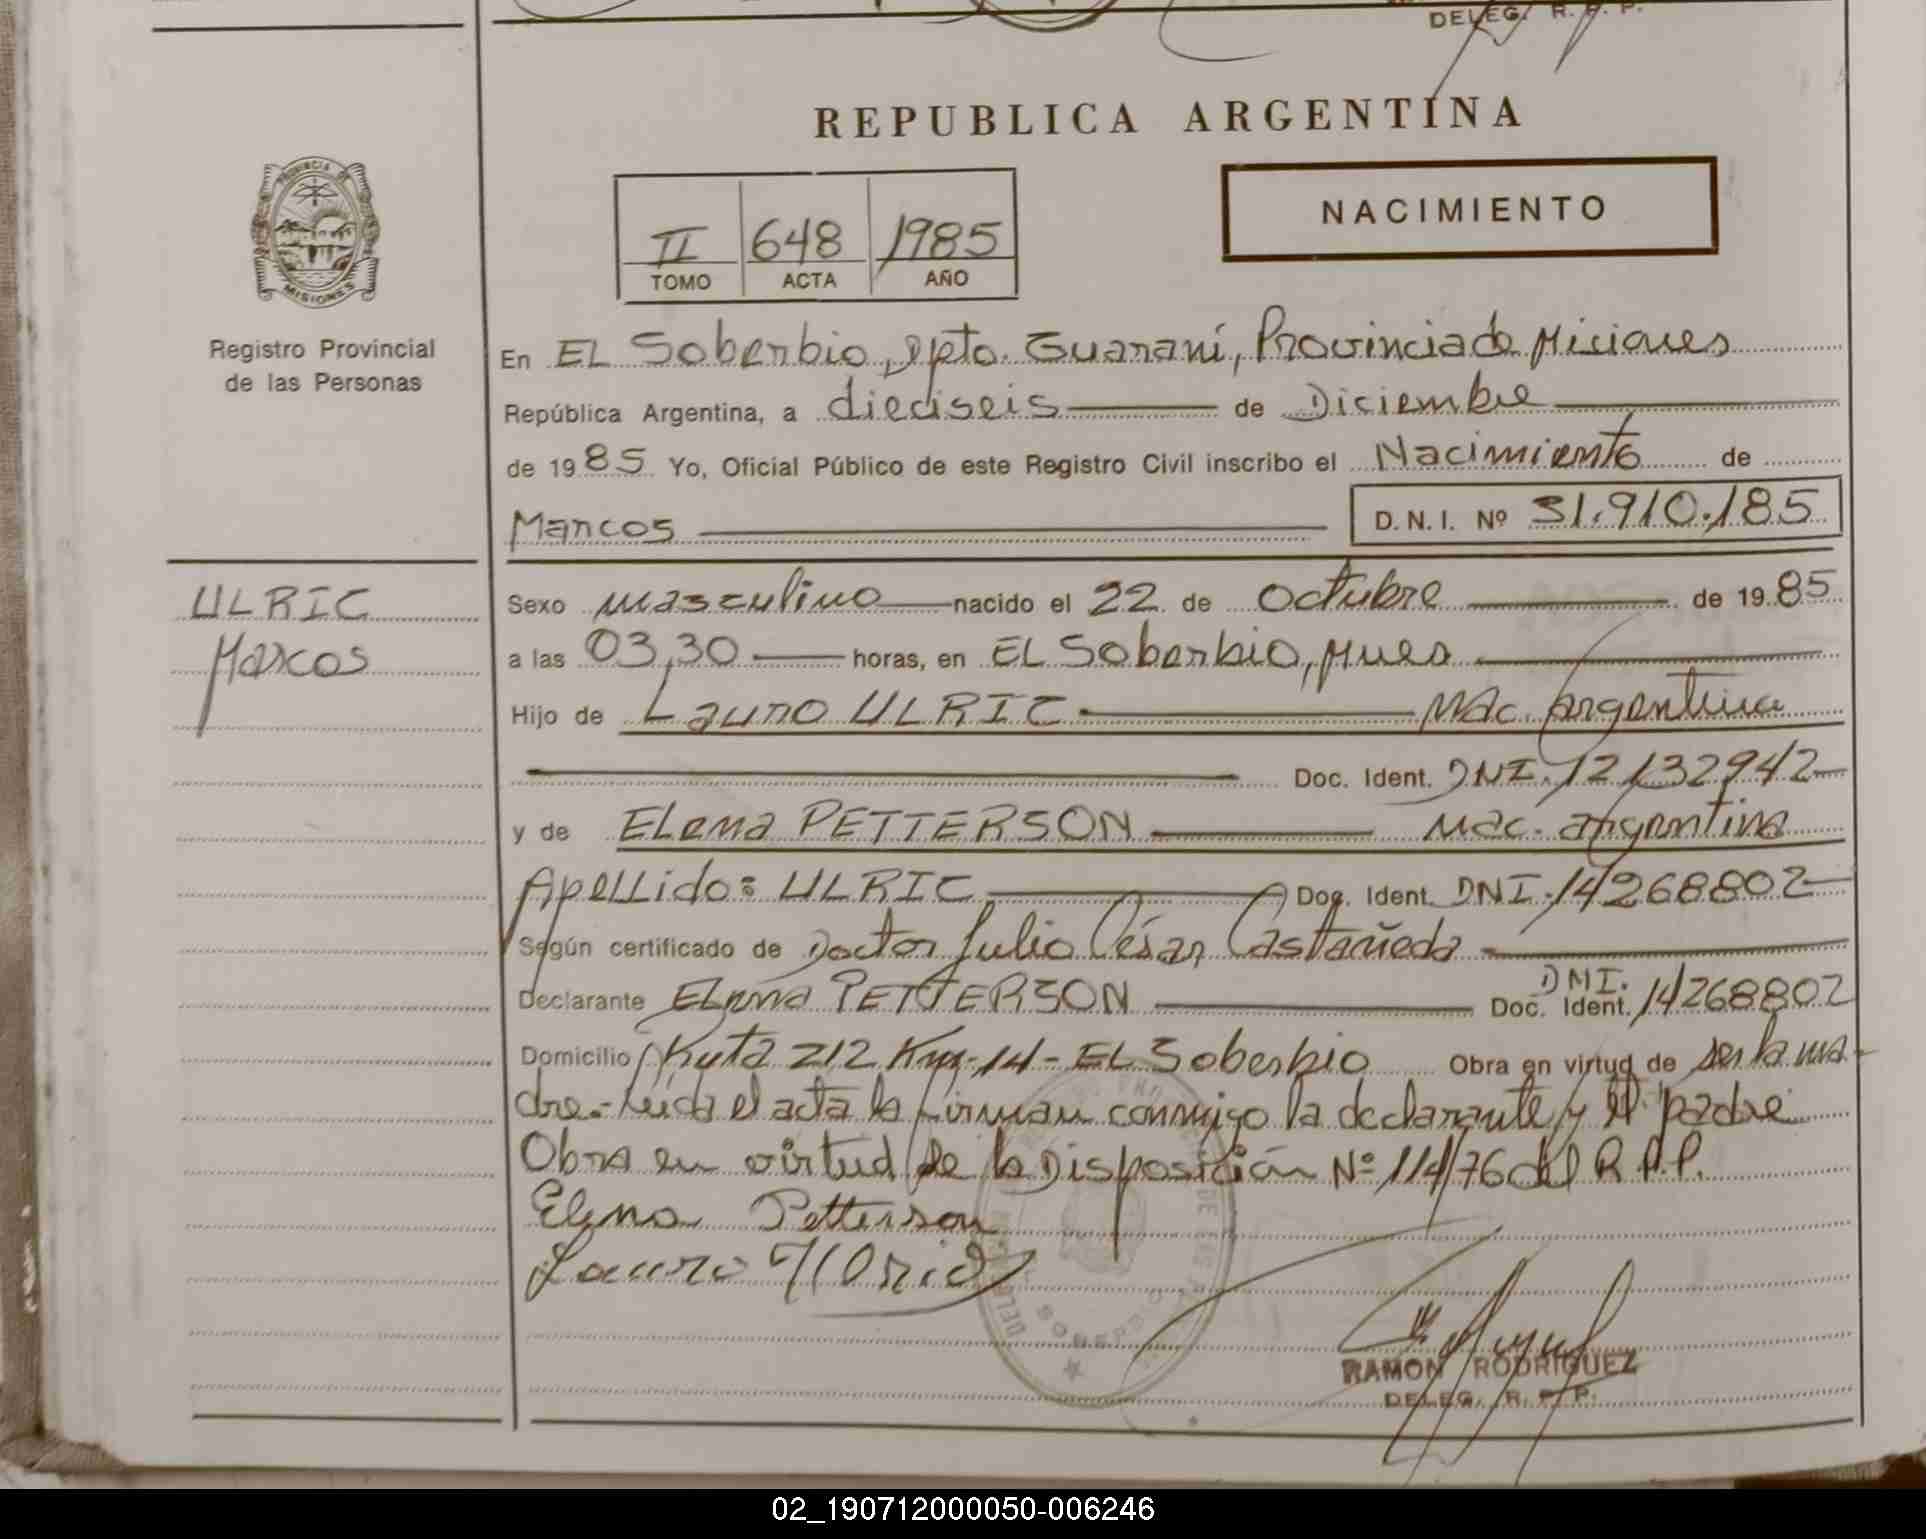 DELEG. R. P. P.
REPUBLICA ARGENTINA
PROVINCIA DE
MISIONES
NACIMIENTO
II 648 1985
TOMO ACTA AÑO
Registro Provincial
de las Personas
En EL Soberbio, Dpto. Guaraní, Provincia de Misiones
República Argentina, a dieciseis de Diciembre
de 1985 Yo, Oficial Público de este Registro Civil inscribo el Nacimiento de
Marcos D.N.I. Nº 31.910.185
ULRIC
Marcos
Sexo masculino nacido el 22 de Octubre de 1985
a las 03,30 horas, en EL Soberbio, Mnes
Hijo de Lauro ULRIC Nac. argentina
Doc. Ident. DNI. 12132942
y de ELena PETTERSON Nac. argentina
Apellido: ULRIC Doc. Ident. DNI. 14268802
Según certificado de Doctor Julio César Castañeda
Declarante ELena PETTERSON Doc. Ident. DNI. 14268802
Domicilio Ruta 212 Km-14- EL Soberbio Obra en virtud de ser la ma-
dre.- Leída el acta la firman conmigo la declarante y el padre
Obra en virtud de la Disposición Nº 114/76 del R.P.P.
Elena Petterson
Lauro
RAMON RODRIGUEZ
DELEG. R. P. P.
02_190712000050-006246